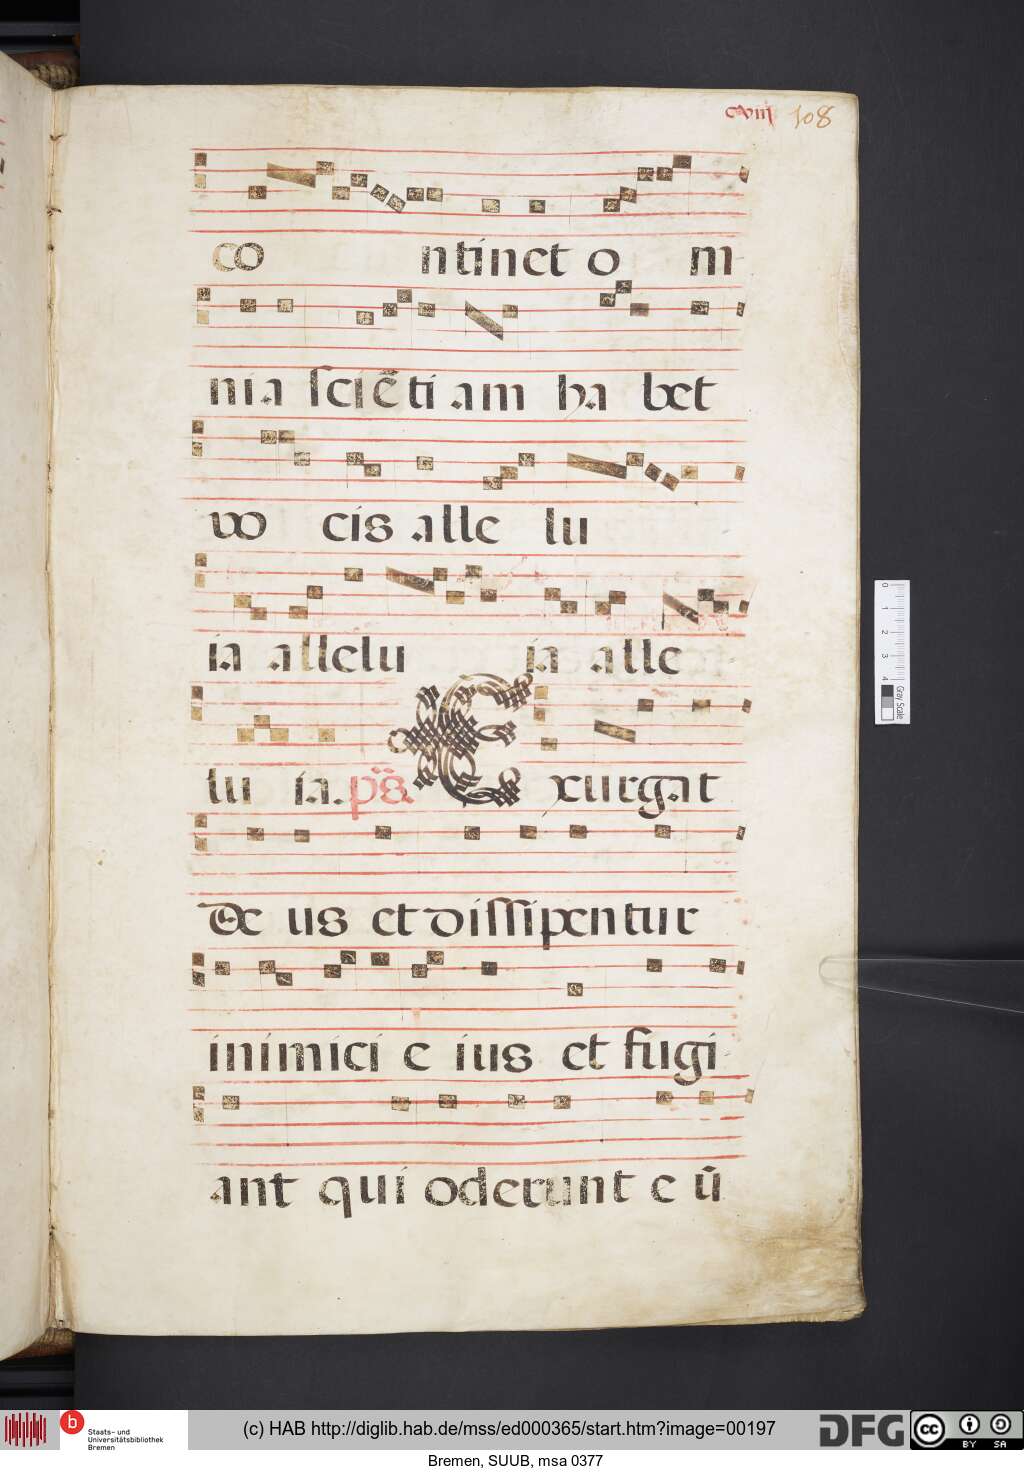 cviij 108
co ntinet o m
nia sciẽti am ha bet
vo cis alle lu
ia allelu ia alle
lu ia. ps̃ Exurgat
De us et dissipentur
inimici e ius et fugi
ant qui oderunt e ũ
0 1 2 3 4
Gray Scale
b Staats- und
Universitätsbibliothek
Bremen
(c) HAB http://diglib.hab.de/mss/ed000365/start.htm?image=00197
DFG
cc BY SA
Bremen, SUUB, msa 0377